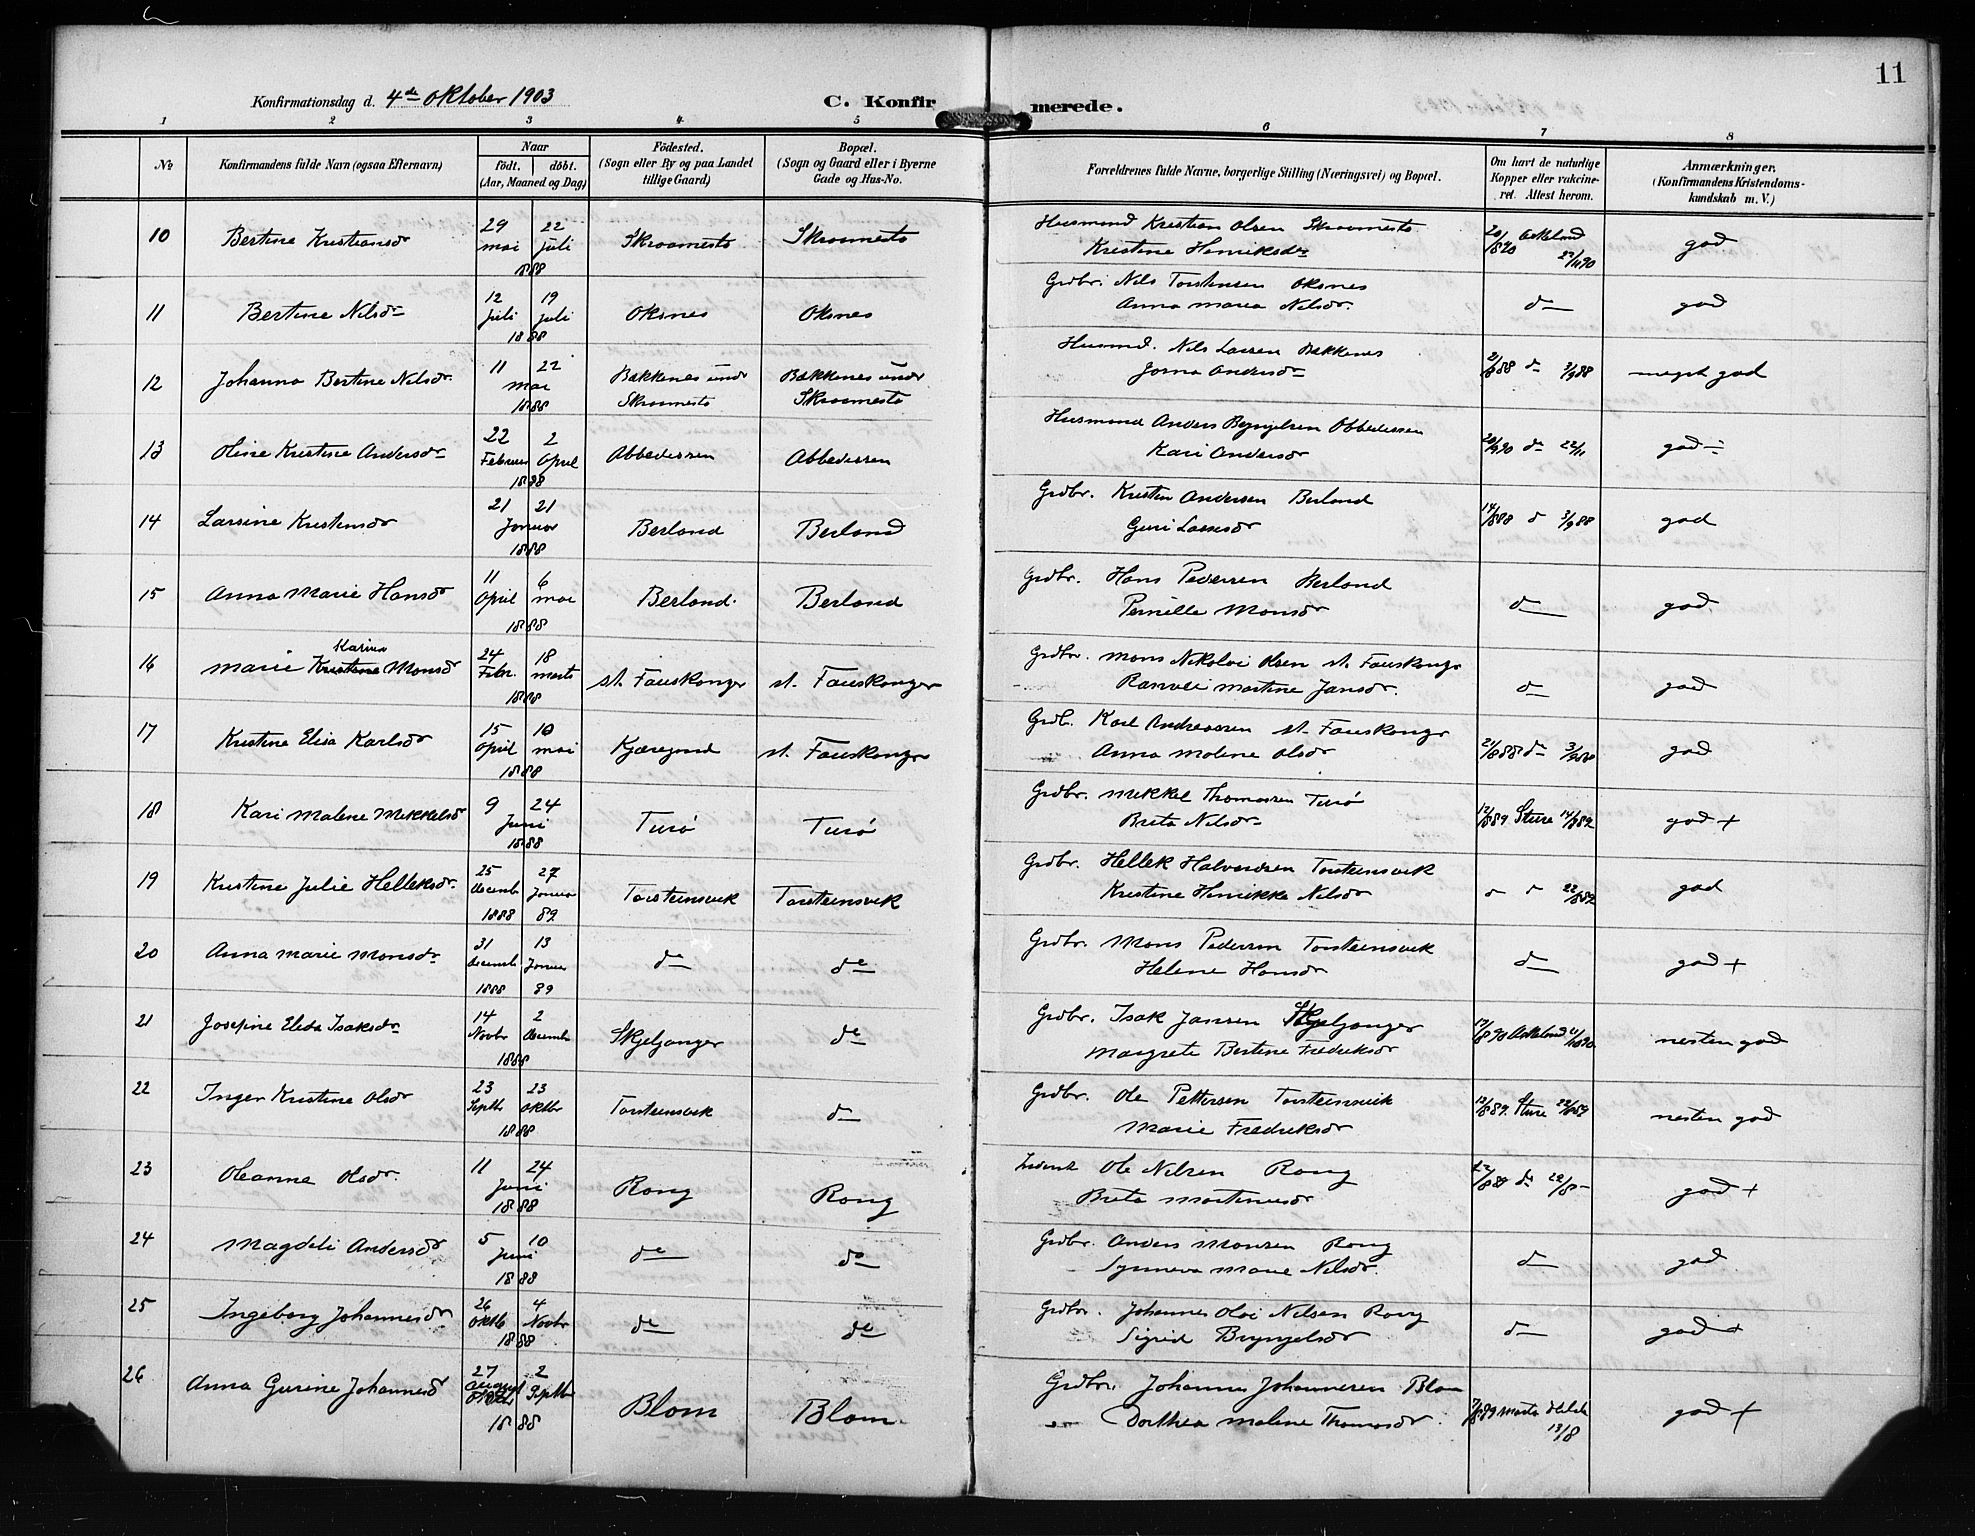 11
Konfirmationsdag d. 4de Oktober 1903
C. Konfirmerede.
1 2 3 4 5 6 7 8
No
Konfirmandens fulde Navn (ogsaa Efternavn)
Naar
født, døbt.
(Aar, Maaned og Dag)
Fødested.
(Sogn eller By og paa Landet
tillige Gaard)
Bopæl.
(Sogn og Gaard eller i Byerne
Gade og Hus-No.
Forældrenes fulde Navne, borgerlige Stilling (Næringsvei) og Bopæl.
Om havt de naturlige
Kopper eller vakcine-
ret. Attest herom.
Anmærkninger.
(Konfirmandens Kristendoms-
kundskab m. V.)
10 Bertine Kristiansdr 29 mai 22 juli 1888 Skraamestø Skraamestø Husmand Kristian Olsen Skraamestø
Kristine Henriksdr god
11 Bertine Nilsdr 12 Juli 19 juli 1888 Oksnes Oksnes Grdbr. Nils Torstensen Oksnes
Anna Maria Nilsdr. d god
12 Johanna Bertine Nilsdr. 11 22 mai 1888 Bakkenes undr Skraamestø Bakkenes undr Skraamestø Husmd. Nils Larsen Bakkenes
Andersdr meget god
13 Oline Kristine Andersdr 22 Februar 2 April 1888 Abbedissen Abbedissen Husmand Anders Brynjelsen Abbedissen
Kari Andersdr god
14 Larsine Kristensdr 21 21 Januar 1888 Berland Berland Grdbr. Kristen Andersen Berland
Guri Larsdr god
15 Anna Marie Hansdr 11 April 6 mai 1888 Berland. Berland Grdbr. Hans Pedersen Berland
Pernille Monsdr d god
16 Marie Karina Monsdr 24 Febr. 18 marts 1888 st. Fauskanger st. Fauskanger Grdbr. Mons Nikolai Olsen st. Fauskangr
Martine Jansdr. d god
17 Kristine Elisa Karlsdr 15 April 10 mai 1888 Kjæregrund st. Fauskangr Grdb. Karl Andreassen st. Fauskangr
Anna Malene Olsdr god
18 Kari Malene Mikkelsdr 9 24 Juni 1888 Turø Turø Grdbr. Mikkel Thomassen Turø
Brita Nilsdr Sture god +
19 Kristine Julie Helleksdr. 25 decemb 1888 27 Januar 89 Torsteinsvik Torsteinsvik Grdbr. Hellek Halvordsen Torsteinsvik
Kristine Henrikke Nilsdr god
20 Anna Marie Monsdr 31 decemb 1888 13 Januar 89 de de Grdbr. Mons Pedersen Torsteinsvik
Helene Hansdr d god +
21 Josefine Elida Isaksdr 14 Novbr 2 decemb 1888 Skjeljanger de Grdbr. Isak Jansen Skjeljanger
Margrete Bertine Fredriksdr nesten god
22 Inger Kristine Olsdr 23 Septb 23 Oktbr 1888 Torsteinsvik d Grdbr. Ole Pettersen Torsteinsvik
Marie Fredriksdr Sture nesten god
23 Oleanna Olsdr. 11 24 Juni 1888 Rong Rong Ole Nilsen Rong
Brita Martinusdr god +
24 Magdeli Andersdr 5 10 Juni 1888 de de Grdbr. Anders Monsen Rong
Synneva Marie Nilsdr. d god
25 Ingeborg Johannesdr 26 Oktb 4 Novbr 1888 de de Grdbr. Johannes Olai Nilsen Rong
Sigrid Brynjelsdr d god +
26 Anna Gurine Johannesdr 27 August 2 Septbr 1888 Blom Blom. Grdbr. Johannes Johannesen Blom
Dorthea Malene Thomasdr. god +